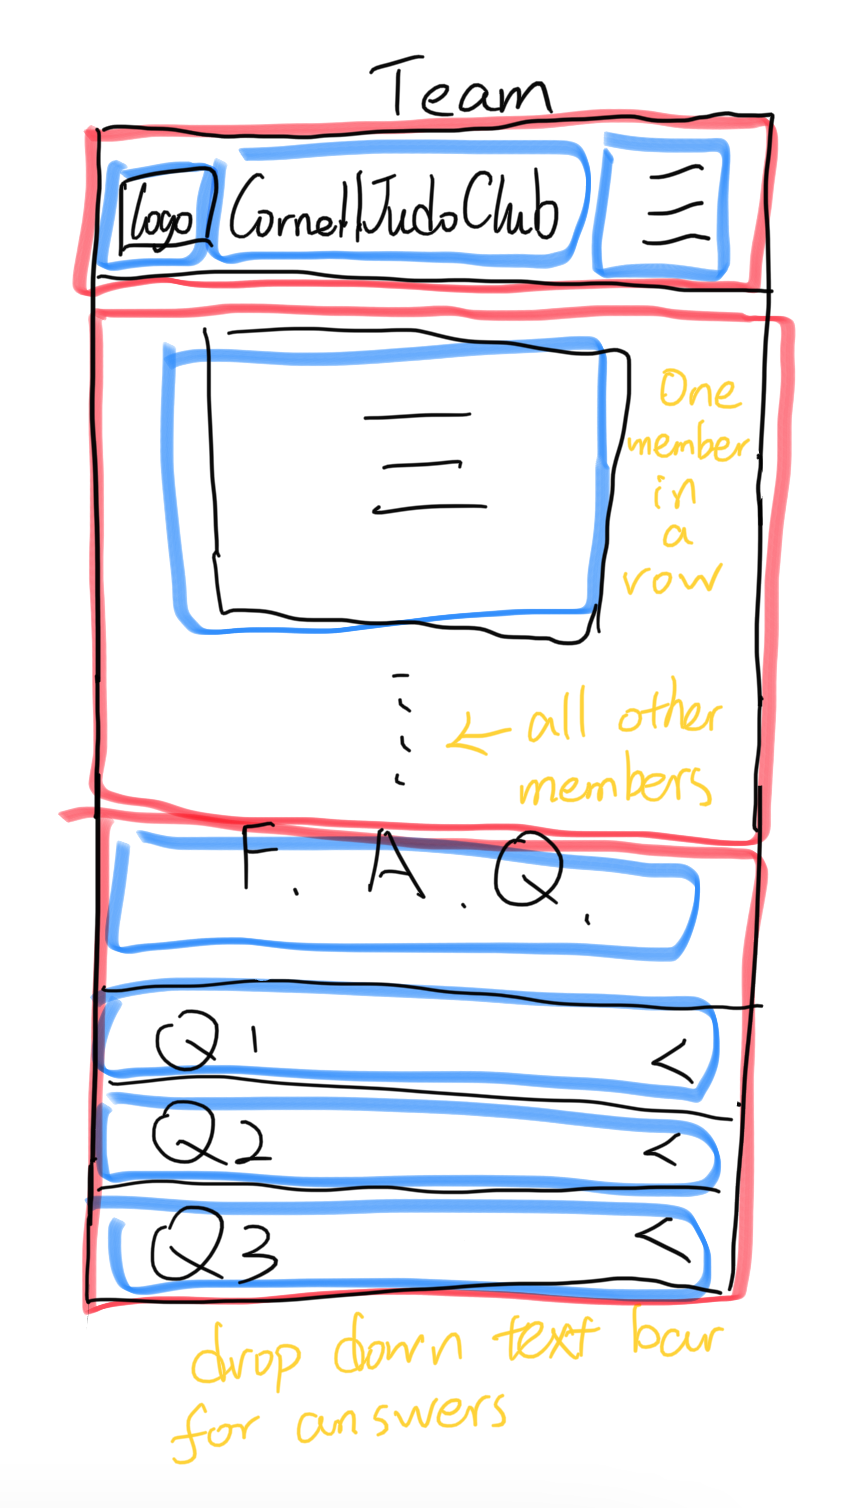 Team
logo
Cornell Judo Club
One
member
in
a
row
← all other
members
F. A. Q.
Q1 <
Q2 <
Q3 <
drop down text bar
for answers